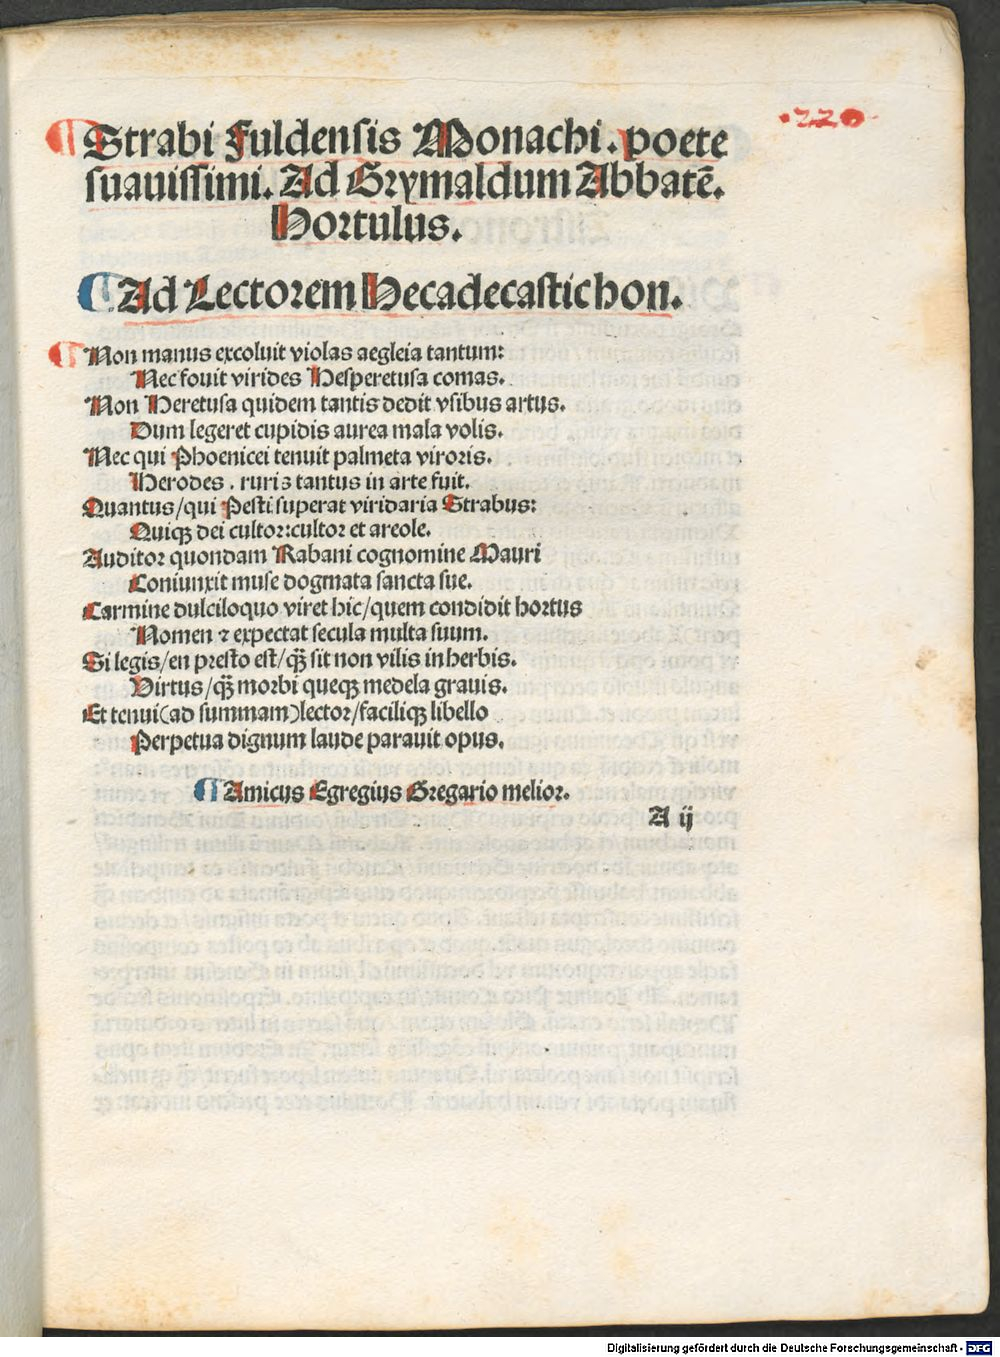 ·220·
¶ Strabi Fuldensis Monachi. poete
suauissimi. Ad Grymaldum Abbatē.
Hortulus.
¶ Ad Lectorem Hecadecastichon.
¶ Non manus excoluit violas aegleia tantum:
Nec fouit virides Hesperetusa comas.
Non Heretusa quidem tantis dedit vsibus artus.
Dum legeret cupidis aurea mala volis.
Nec qui Phoenicei tenuit palmeta viroris.
Herodes. ruris tantus in arte fuit.
Quantus/qui Pesti superat viridaria Strabus:
Quiqꝫ dei cultor:cultor et areole.
Auditor quondam Rabani cognomine Mauri
Coniunxit muse dogmata sancta sue.
Carmine dulciloquo viret hic/quem condidit hortus
Nomen ⁊ expectat secula multa suum.
Si legis/en presto est/qꝫ̄ sit non vilis in herbis.
Virtus/qꝫ̄ morbi queqꝫ medela grauis.
Et tenui(ad summam)lector/faciliqꝫ libello
Perpetua dignum laude parauit opus.
¶ Amicus Egregius Gregario melior.
A ij
Digitalisierung gefördert durch die Deutsche Forschungsgemeinschaft - DFG